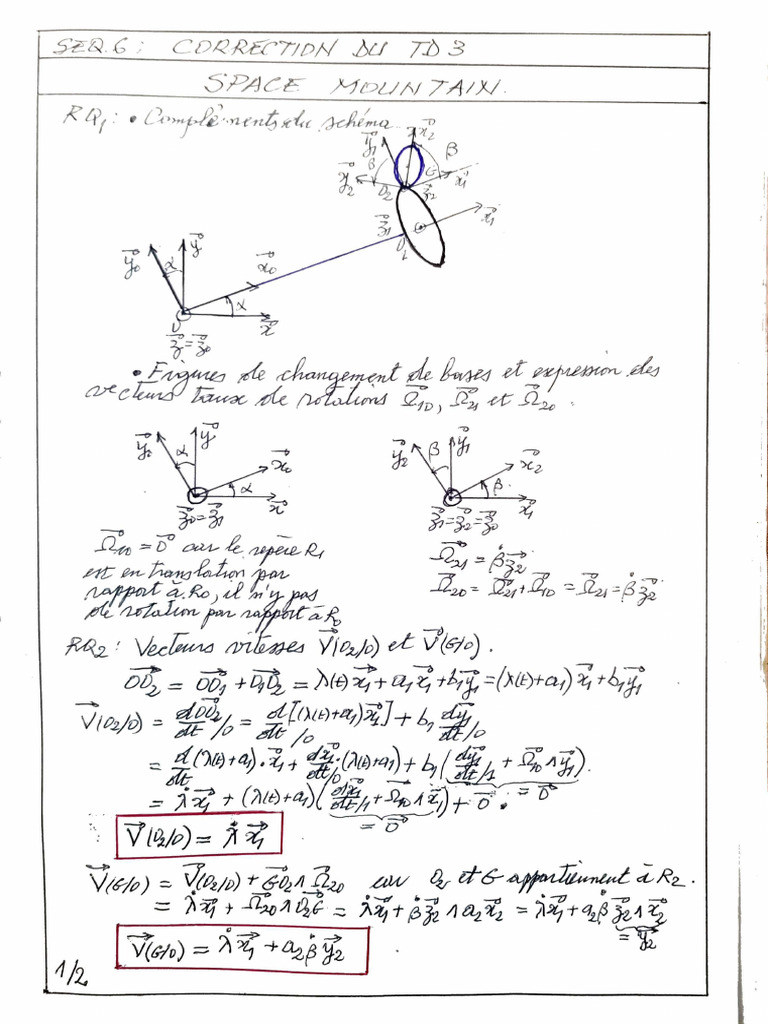 SEQ.6 : CORRECTION DU TD3
SPACE MOUNTAIN.
RQ₁ : • Compléments du schéma
y₁⃗ x₂⃗ β
β y₂⃗ G x₁⃗
O₂ z₂⃗
z₁⃗ O₁ x₁⃗
y₀⃗ y⃗ α x₀⃗
α
O x⃗
z⃗ = z₀⃗
• Figures de changement de bases et expression des
vecteurs taux de rotations Ω⃗₁₀, Ω⃗₂₁ et Ω⃗₂₀.
y₀⃗ α y⃗ x₀⃗ α x⃗
z₀⃗ = z₁⃗
y₂⃗ β y₁⃗ x₂⃗ β x₁⃗
z₁⃗ = z₂⃗ = z₀⃗
Ω⃗₁₀ = 0⃗ car le repère R₁
est en translation par
rapport à R₀, il n'y pas
de rotation par rapport à R₀
Ω⃗₂₁ = β̇ z₂⃗
Ω⃗₂₀ = Ω⃗₂₁ + Ω⃗₁₀ = Ω⃗₂₁ = β̇ z₂⃗
RQ₂ : Vecteurs vitesses V⃗(O₂/0) et V⃗(G/0).
OO₂⃗ = OO₁⃗ + O₁O₂⃗ = λ(t) x₁⃗ + a₁ x₁⃗ + b₁ y₁⃗ = (λ(t)+a₁) x₁⃗ + b₁ y₁⃗
V⃗(O₂/0) = dOO₂⃗/dt /0 = d[(λ(t)+a₁) x₁⃗]/dt /0 + b₁ dy₁⃗/dt /0
= d/dt (λ(t)+a₁) · x₁⃗ + dx₁⃗/dt/0 · (λ(t)+a₁) + b₁ (dy₁⃗/dt/1 + Ω⃗₁₀ ∧ y₁⃗).
= 0⃗
= λ̇ x₁⃗ + (λ(t)+a₁) (dx₁⃗/dt/1 + Ω⃗₁₀ ∧ x₁⃗) + 0⃗.
= 0⃗
V⃗(O₂/0) = λ̇ x₁⃗
V⃗(G/0) = V⃗(O₂/0) + GO₂⃗ ∧ Ω⃗₂₀ car O₂ et G appartiennent à R₂.
= λ̇ x₁⃗ + Ω⃗₂₀ ∧ O₂G⃗ = λ̇ x₁⃗ + β̇ z₂⃗ ∧ a₂ x₂⃗ = λ̇ x₁⃗ + a₂ β̇ z₂⃗ ∧ x₂⃗
= y₂⃗
V⃗(G/0) = λ̇ x₁⃗ + a₂ β̇ y₂⃗
1/2